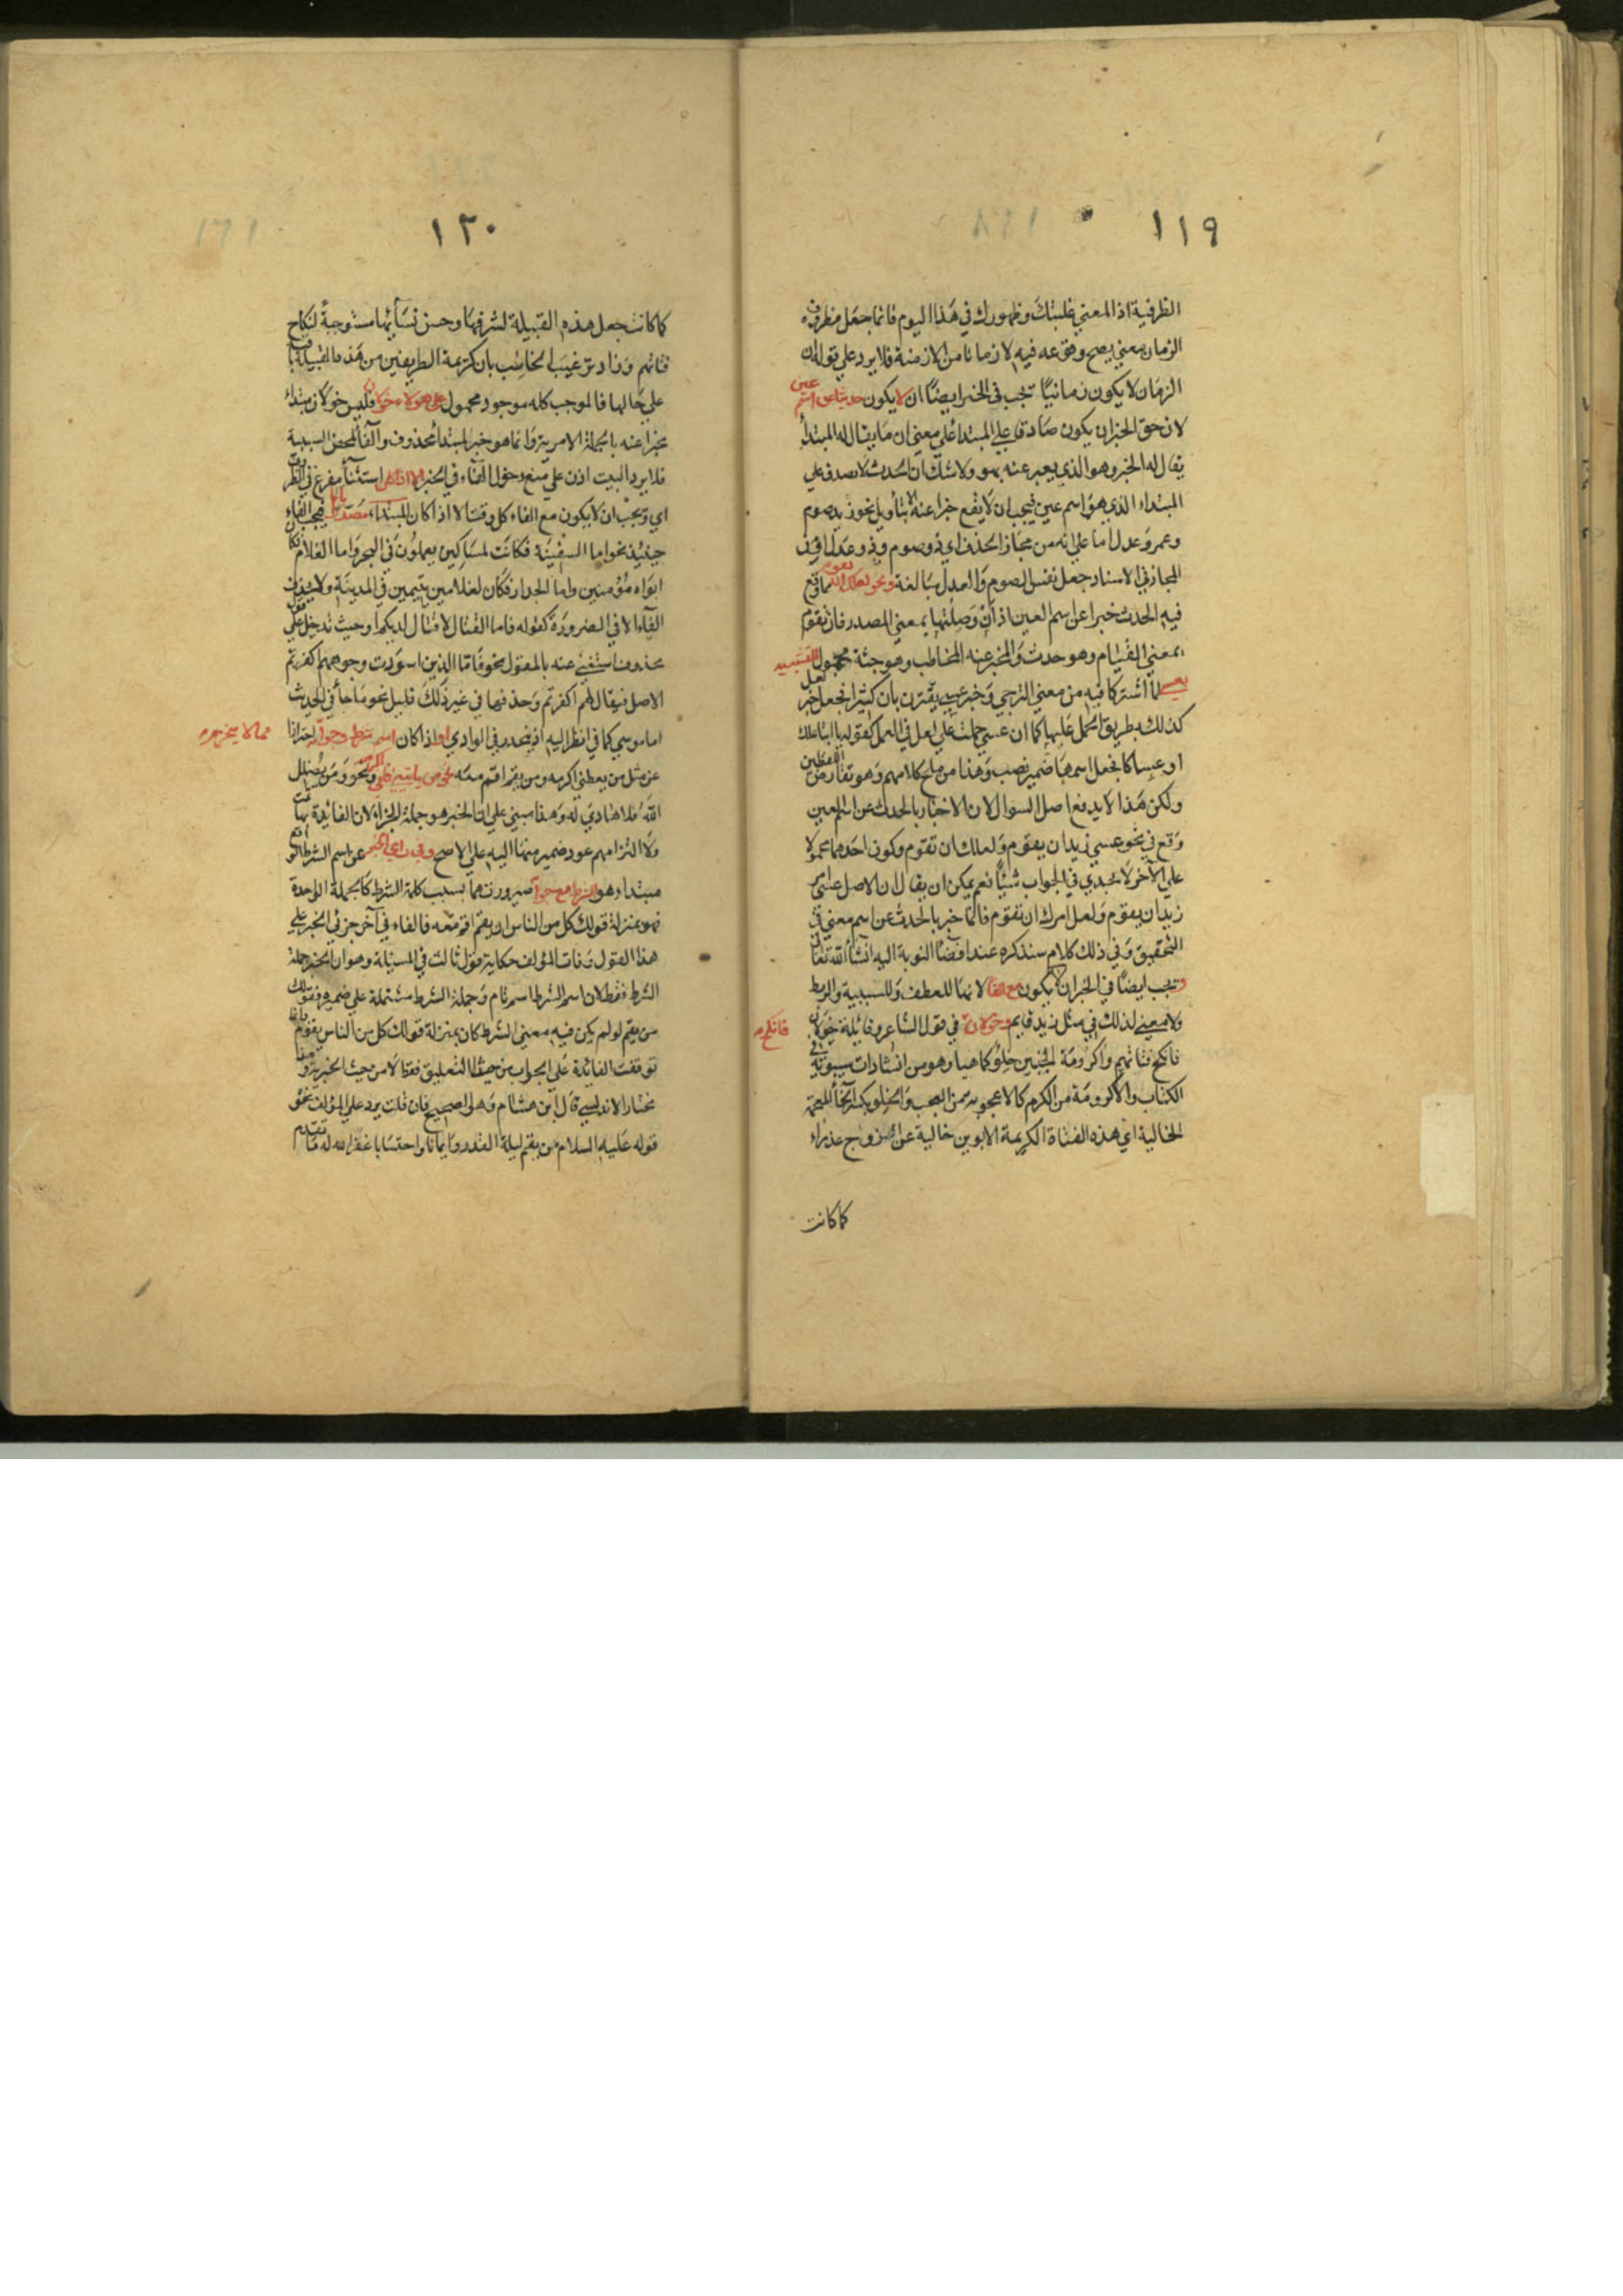 ١١٩
الظرفية اذ المعني غلبتك وظهورك في هذا اليوم فانما جعل مظروف
الزمان معني يصح وقوعه فيه لا زمانا من الازمنة فلا يرد علي قوله ان
الزمان لا يكون زمانيا تجب في الخبر ايضا ان لا يكون حدثا عن اسم عين
لان حق الخبر ان يكون صادقا علي المبتدا علي معني ان ما يقال له المبتدا
يقال له الخبر وهو الذي يعبر عنه بهو ولا شك ان الحدث لا يصدق علي
المبتداء الذي هو اسم عين فيجب ان لا يقع خبرا عنه الا بتأويل نحو زيد صوم
وعمرو عدل اما علي انه من مجاز الحذف اي ذو صوم وذو عدل او من
المجاز في الاسناد جعل نفس الصوم والعدل مبالغة ونحو لعلك ان تقوم مما وقع
فيه الحدث خبرا عن اسم العين اذ ان وصلتها بمعني المصدر فان تقوم
بمعني القيام وهو حدث والمخبر عنه المخاطب وهو جثة محمول للتشبيه
بعسي لما اشتركا فيه من معني الترجي وخبر عسي يقترن بان كثيرا فجعل خبر لعل
كذلك بطريق الحمل عليها كما ان عسي حملت علي لعل في العمل كقوله يا ابتا علك
او عساكا بجعل اسمها ضمير نصب وهذا من ملح كلامهم وهو تقارض اللفظين
ولكن هذا لا يدفع اصل السوال لان الاخبار بالحدث عن اسم العين
وقع في نحو عسي زيد ان يقوم ولعلك ان تقوم وكون احدهما محمولا
علي الآخر لا يجدي في الجواب شيئا نعم يمكن ان يقال ان الاصل عسي امر
زيد ان يقوم ولعل امرك ان تقوم فانما خبر بالحدث عن اسم معني في
التحقيق وفي ذلك كلام سنذكره عند افضا النوبة اليه ان شا الله تعالي
وتجب ايضا في الخبر ان لا يكون مع الفا لانها للعطف وللسببية والربط
ولا معني لذلك في مثل زيد قايم وخولان في قول الشاعر وقائلة خولان فانكح
فانكح فتاتهم واكرومة الحيين خلو كما هيا وهو من انشادات سيبويه في
الكتاب والاكرومة من الكرم كالاعجوبة من العجب والخلو بكسر الخا المعجمة
الخالية اي هذه الفتاة الكريمة الابوين خالية عن الازواج عذراء
كما كانت
١٢٠
كما كانت جعل هذه القبيلة لشرفها وحسن نسائها مستوجبة لنكاح
فتاتهم وزاد ترغيب المخاطب بان كريمة الطرفين من هذه القبيلة باقية
علي حالها فالموجب كله موجود محمول علي هولاء خولان فليس خولان مبتداء
مخبرا عنه بالجملة الامرية وانما هو خبر لمبتدا محذوف والفا لمحض السببية
فلا يرد البيت اذن علي منع دخول الفاء في الخبر الا اذا كان استثنا مفرغ في الظروف
اي وتجب ان لا يكون مع الفاء كل وقت الا اذا كان المبتداء مصدرا باما فيجب الفاء
حينئذ نحو اما السفينة فكانت لمساكين يعملون في البحر واما الغلام فكان
ابواه مؤمنين واما الجدار فكان لغلامين يتيمين في المدينة ولا تحذف
الفاء الا في الضرورة كقوله فاما القتال لا قتال لديكم او حيث تدخل علي قول
محذوف استغني عنه بالمقول نحو فاما الذين اسودت وجوههم اكفرتم
الاصل فيقال لهم اكفرتم وحذفها في غير ذلك قليل نحو ما جا في الحديث
اما موسي كاني انظر اليه اذ ينحدر في الوادي او اذا كان اسم شرط وجوابه احترازا مما لا يخبر به
عن مثل من يعطني اكرمه ومن يقم اقم معه نحو من ياتيني فله درهم ونحو ومن يضلل
الله فلا هادي له وهذا مبني علي ان الخبر هو جملة الجزاء لان الفائدة بها تمت
ولالتزامهم عود ضمير منها اليه علي الاصح وفي راي الخبر عن اسم الشرط الواقع
مبتداء هو الشرط مع جوابه لصيرورتهما بسبب كلمة الشرط كالجملة الواحدة
فهو بمنزلة قولك كل من الناس ان يقم اقم معه فالفاء في آخر جزئي الخبر علي
هذا القول وفات المؤلف حكاية قول ثالث في المسئلة وهو ان الخبر جملة
الشرط فقط لان اسم الشرط اسم تام وجملة الشرط مشتملة علي ضميره فقولك
من يقم لو لم يكن فيه معني الشرط كان بمنزلة قولك كل من الناس يقوم وانما
توقفت الفائدة علي الجواب من حيث التعليق فقط لا من حيث الخبرية وهذا
مختار الاندلسي قال ابن هشام وهو الصحيح فان قلت يرد علي المؤلف نحو
قوله عليه السلام من يقم ليلة القدر ايمانا واحتسابا غفر الله له ما تقدم